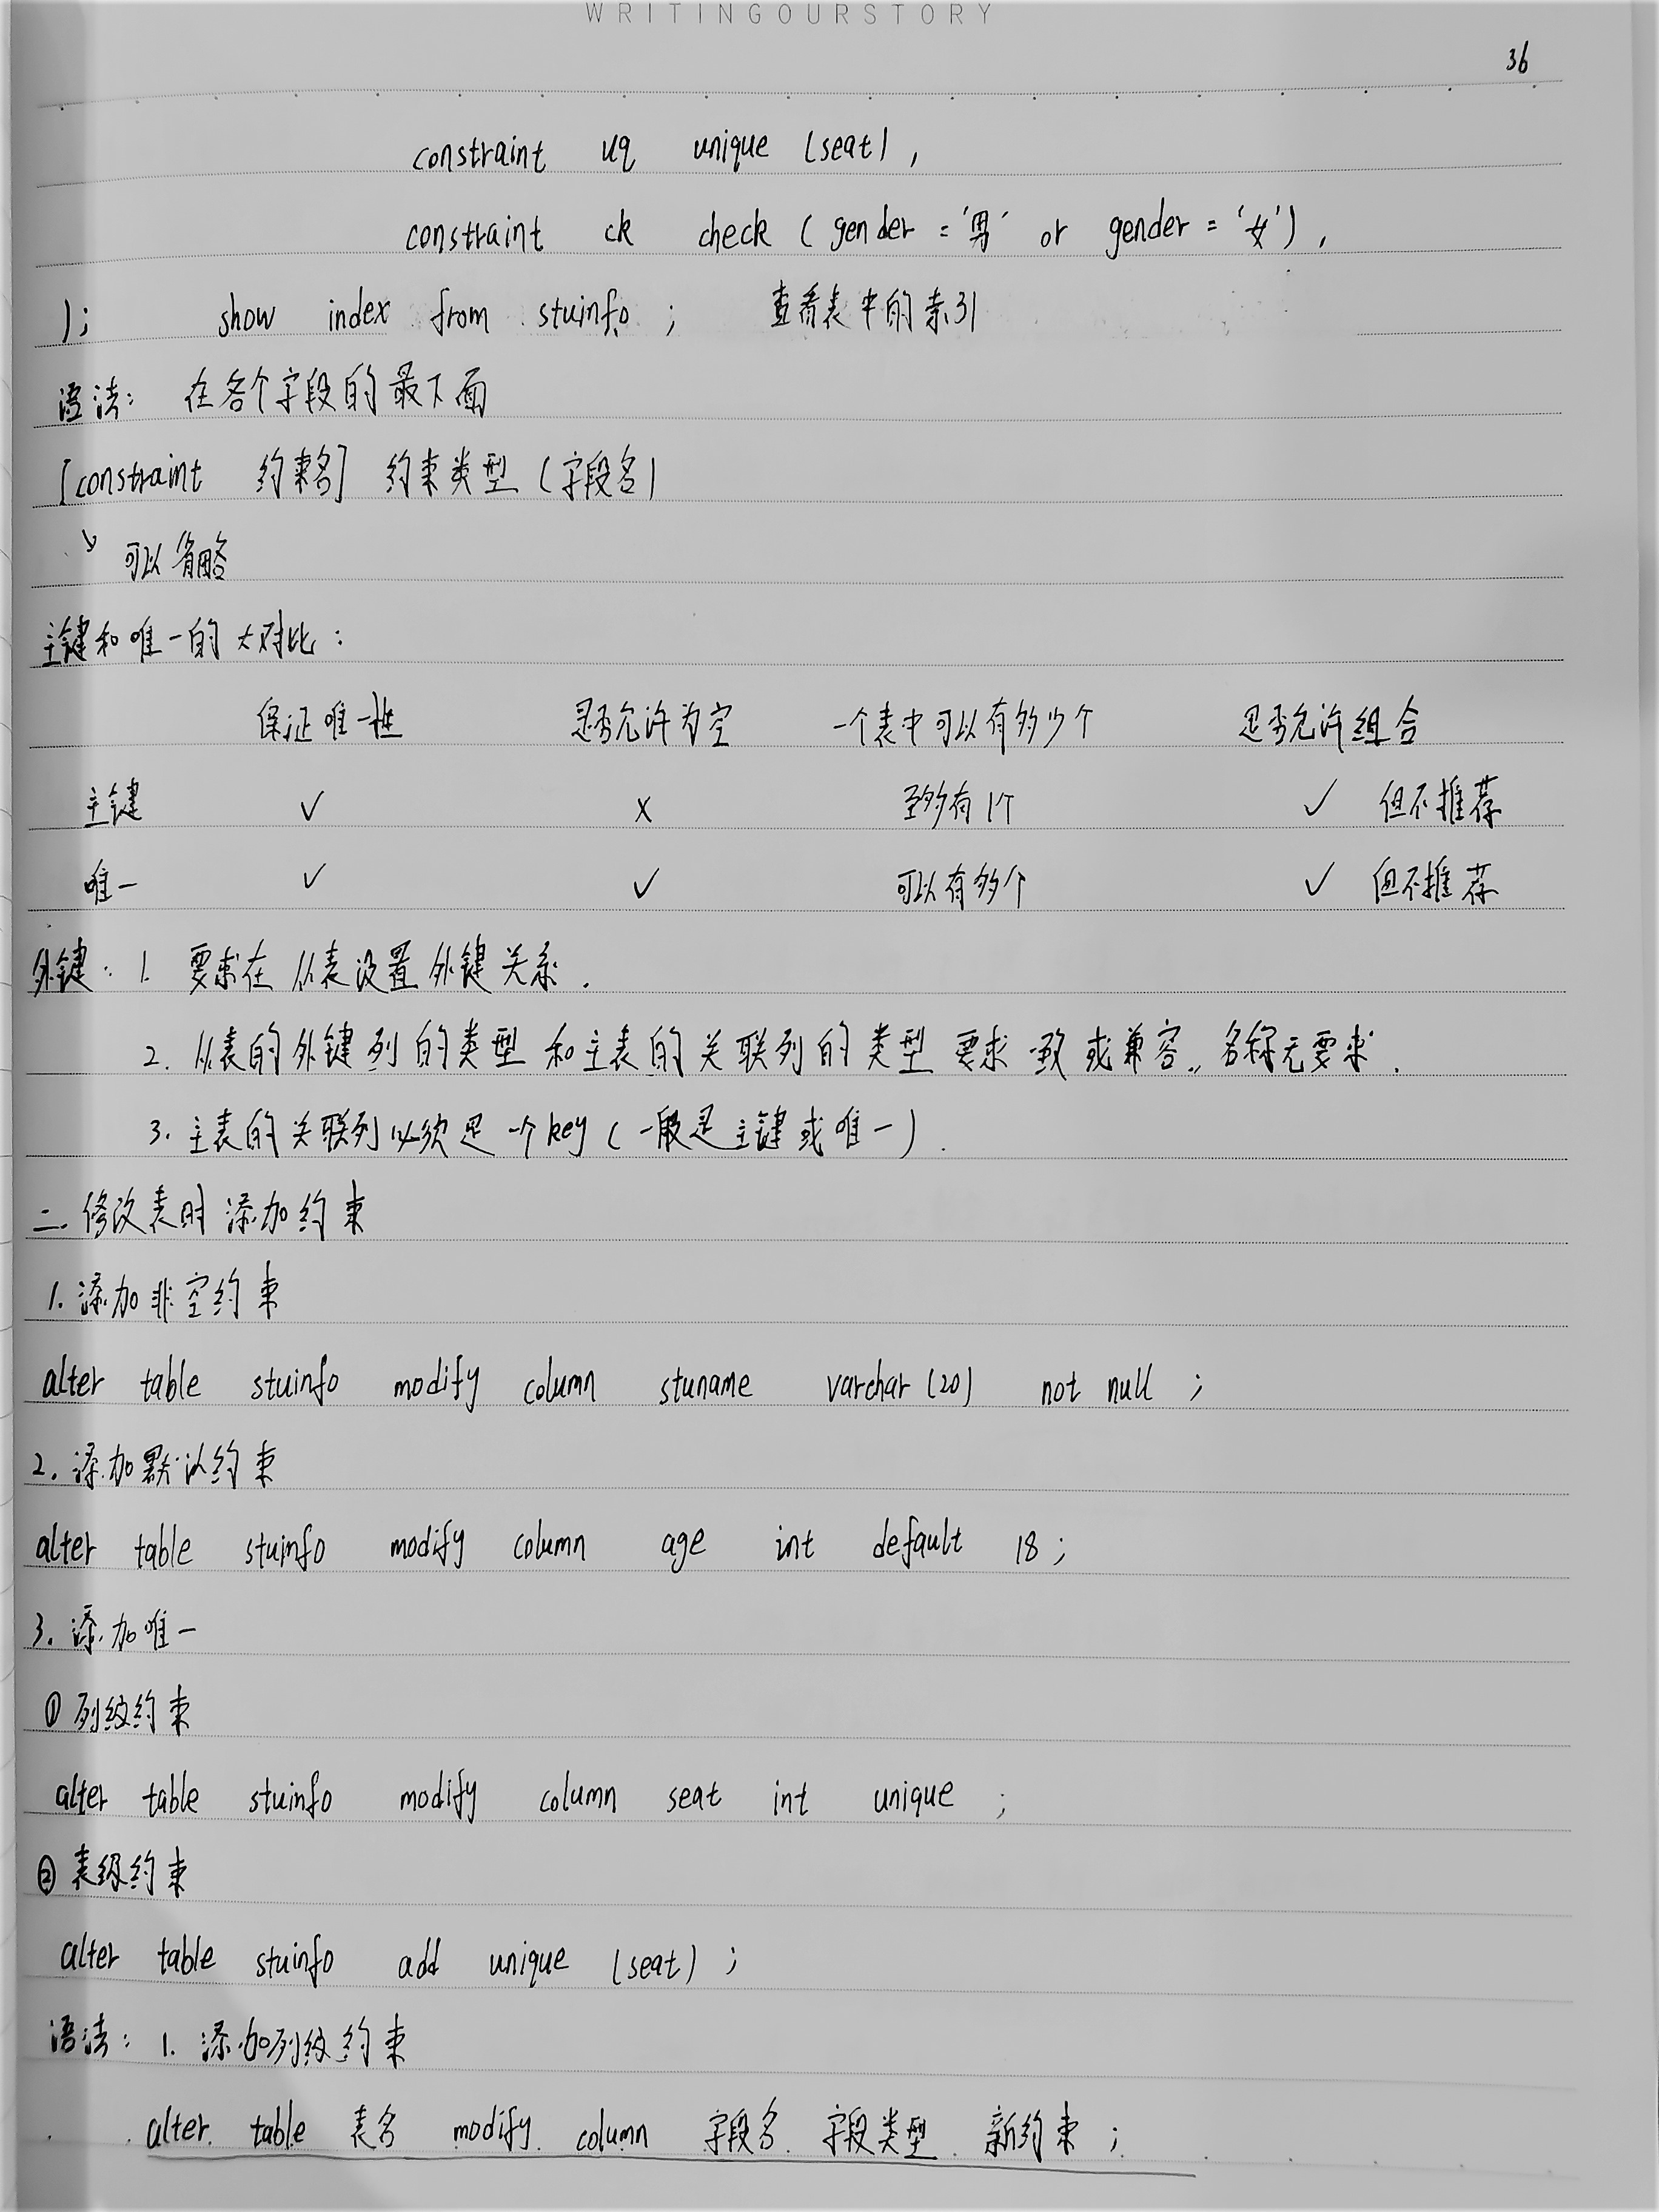 WRITINGOURSTORY
36
constraint uq unique (seat),
constraint ck check (gender = '男' or gender = '女'),
); show index from stuinfo; 查看表中的索引
语法: 在各个字段的最下面
[constraint 约束名] 约束类型 (字段名)
↘ 可以省略
主键和唯一的大对比:
保证唯一性 是否允许为空 一个表中可以有多少个 是否允许组合
主键 ✓ × 至多有1个 ✓ 但不推荐
唯一 ✓ ✓ 可以有多个 ✓ 但不推荐
外键: 1. 要求在从表设置外键关系.
2. 从表的外键列的类型和主表的关联列的类型要求一致或兼容., 名称无要求.
3. 主表的关联列必须是一个key (一般是主键或唯一).
二. 修改表时添加约束
1. 添加非空约束
alter table stuinfo modify column stuname varchar(20) not null;
2. 添加默认约束
alter table stuinfo modify column age int default 18;
3. 添加唯一
① 列级约束
alter table stuinfo modify column seat int unique;
② 表级约束
alter table stuinfo add unique (seat);
语法: 1. 添加列级约束
alter table 表名 modify column 字段名 字段类型 新约束;